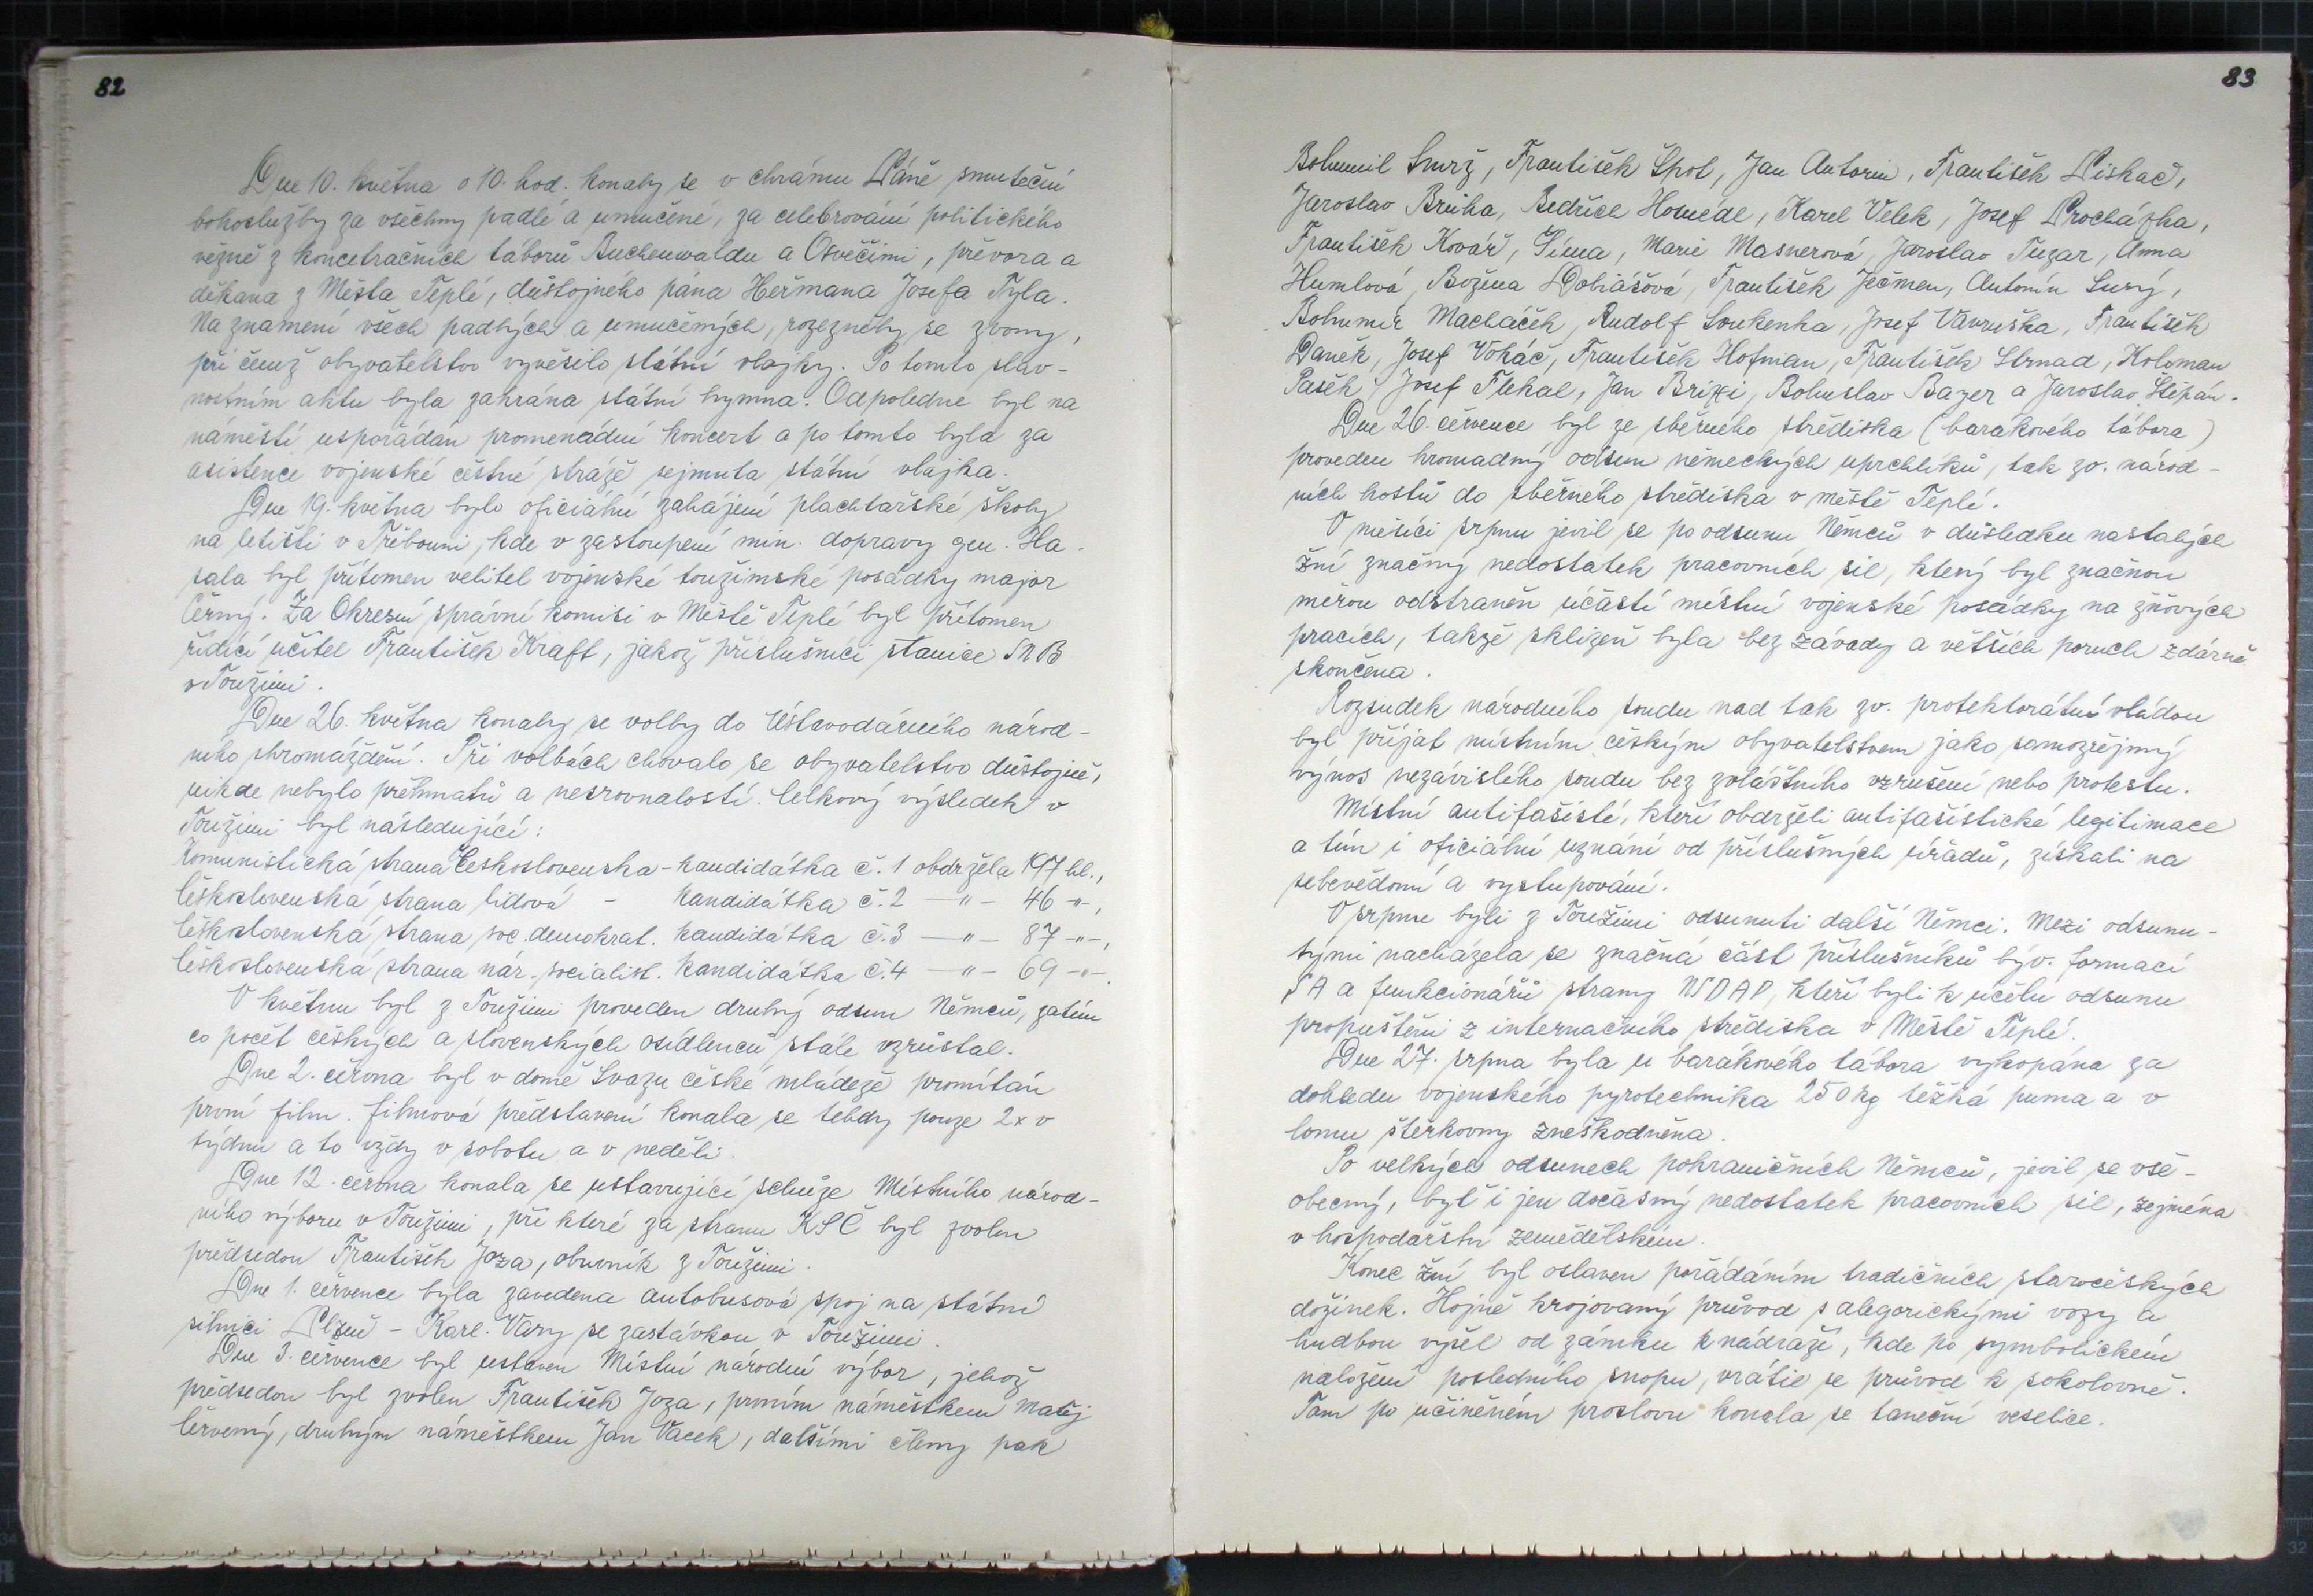 82
Dne 10. května o 10. hod. konaly se v chrámu Páně smuteční
bohoslužby za všechny padlé a umučené, za celebrování politického
vězně z koncetračních táborů Buchenwaldu a Osvěčimi, převora a
děkana z Města Teplé, důstojného pána Heřmana Josefa Tyla.
Na znamení všech padlých a umučených, rozezněly se zvony,
při čemž obyvatelstvo vyvěsilo státní vlajky. Po tomto slav-
nostním aktu byla zahrána státní hymna. Odpoledne byl na
náměstí uspořádán promenádní koncert a po tomto byla za
asistence vojenské čestné stráže sejmuta státní vlajka.
Dne 19. května bylo oficiální zahájení plachtařské školy
na letišti v Třebouni, kde v zastoupení min. dopravy gen. Ha-
sala byl přítomen velitel vojenské toužimské posádky major
Černý. Za Okresní správní komisi v Městě Teplé byl přítomen
řídící učitel František Kraft, jakož příslušníci stanice SNB
v Toužimi.
Dne 26. května konaly se volby do Ústavodárného národ-
ního shromáždění. Při volbách chovalo se obyvatelstvo důstojně,
nikde nebylo přehmatů a nesrovnalostí. Celkový výsledek v
Toužimi byl následující:
Komunistická strana Československa - kandidátka č. 1 obdržela 197 hl.,
Československá strana lidová - kandidátka č. 2 —"— 46 -"-,
Československá strana soc. demokrat. kandidátka č. 3 —"— 87 -"-,
Československá strana nár. socialist. kandidátka č. 4 —"— 69 -"-.
V květnu byl z Toužimi proveden druhý odsun Němců, zatím
co počet českých a slovenských osídlenců stále vzrůstal.
Dne 2. června byl v domě Svazu české mládeže promítán
první film. Filmová představení konala se tehdy pouze 2x v
týdnu a to vždy v sobotu a v neděli.
Dne 12. června konala se ustavující schůze Místního národ-
ního výboru v Toužimi, při které za stranu KSČ byl zvolen
předsedou František Joza, obuvník z Toužimi.
Dne 1. července byla zavedena autobusová spoj na státní
silnici Plzeň - Karl. Vary se zastávkou v Toužimi.
Dne 3. července byl ustaven Místní národní výbor, jehož
předsedou byl zvolen František Joza, prvním náměstkem Matěj
Červený, druhým náměstkem Jan Vacek, dalšími členy pak
83
Bohumil Smrž, František Špot, Jan Antorin, František Piskač,
Jaroslav Brůha, Bedřich Hosnédl, Karel Velek, Josef Procházka,
František Kovář, Šíma, Marie Masnerová, Jaroslav Tuzar, Anna
Humlová, Božena Dobiášová, František Ječmen, Antonín Surý,
Bohumír Macháček, Rudolf Soukenka, Josef Vavruška, František
Daněk, Josef Vokáč, František Hofman, František Strnad, Koloman
Pašek, Josef Flekal, Jan Brixi, Bohuslav Bazer a Jaroslav Štěpán.
Dne 26. července byl ze sběrného střediska (barákového tábora)
proveden hromadný odsun německých uprchlíků, tak zv. národ-
ních hostů do sběrného střediska v městě Teplé.
V měsíci srpnu jevil se po odsunu Němců v důsledku nastalých
žní značný nedostatek pracovních sil, který byl značnou
měrou odstraněn účastí místní vojenské posádky na žňových
pracích, takže sklizeň byla bez závady a větších poruch zdárně
skončena.
Rozsudek národního soudu nad tak zv. protektorátní vládou
byl přijat místním českým obyvatelstvem jako samozřejmý
výnos nezávislého soudu bez zvláštního vzrušení nebo protestu.
Místní antifašisté, kteří obdrželi antifašistické legitimace
a tím i oficiální uznání od příslušných úřadů, získali na
sebevědomí a vystupování.
V srpnu byli z Toužimi odsunuti další Němci. Mezi odsunu-
tými nacházela se značná část příslušníků býv. formací
SA a funkcionářů strany NSDAP, kteří byli k účelu odsunu
propuštěni z internačního střediska v Městě Teplé.
Dne 27. srpna byla u barákového tábora vykopána za
dohledu vojenského pyrotechnika 250 kg těžká puma a v
lomu štěrkovny zneškodněna.
Po velkých odsunech pohraničních Němců, jevil se vše-
obecný, byť i jen dočasný nedostatek pracovních sil, zejména
v hospodářství zemědělském.
Konec žní byl oslaven pořádáním tradičních staročeských
dožinek. Hojně krojovaný průvod s alegorickými vozy a
hudbou vyšel od zámku k nádraží, kde po symbolickém
naložení posledního snopu, vrátil se průvod k sokolovně.
Tam po učiněném proslovu konala se taneční veselice.